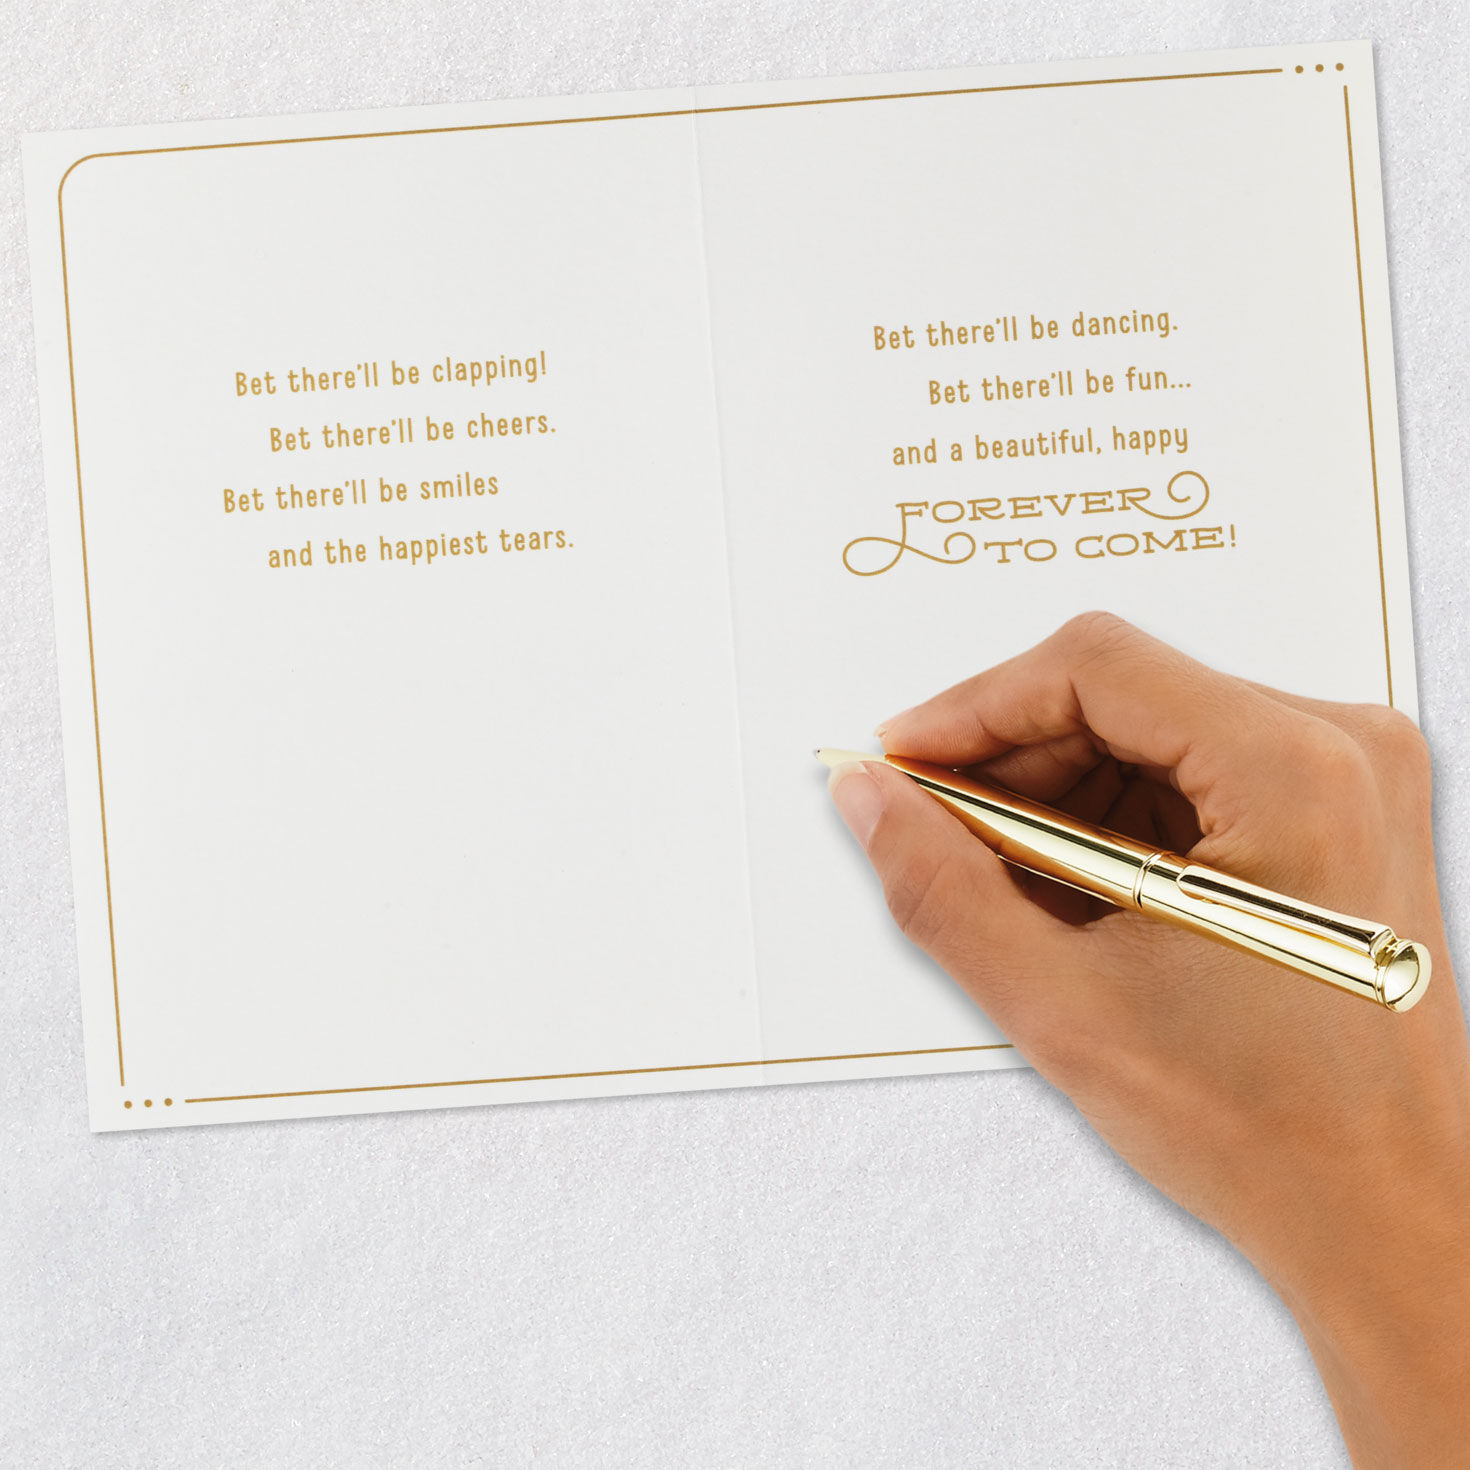 Bet there'll be clapping!
Bet there'll be cheers.
Bet there'll be smiles
and the happiest tears.
Bet there'll be dancing.
Bet there'll be fun...
and a beautiful, happy
FOREVER
TO COME!